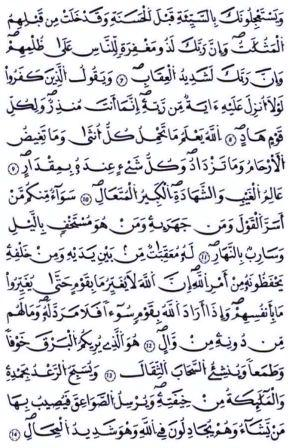 وَيَسْتَعْجِلُونَكَ بِالسَّيِّئَةِ قَبْلَ الْحَسَنَةِ وَقَدْ خَلَتْ مِن قَبْلِهِمُ
الْمَثُلَٰتُ وَإِنَّ رَبَّكَ لَذُو مَغْفِرَةٍ لِّلنَّاسِ عَلَىٰ ظُلْمِهِمْ
وَإِنَّ رَبَّكَ لَشَدِيدُ الْعِقَابِ ٧ وَيَقُولُ الَّذِينَ كَفَرُواْ
لَوْلَا أُنزِلَ عَلَيْهِ ءَايَةٌ مِّن رَّبِّهِ إِنَّمَا أَنتَ مُنذِرٌ وَلِكُلِّ
قَوْمٍ هَادٍ ٨ اللَّهُ يَعْلَمُ مَا تَحْمِلُ كُلُّ أُنثَىٰ وَمَا تَغِيضُ
الْأَرْحَامُ وَمَا تَزْدَادُ وَكُلُّ شَيْءٍ عِندَهُ بِمِقْدَارٍ ٩
عَالِمُ الْغَيْبِ وَالشَّهَادَةِ الْكَبِيرُ الْمُتَعَالِ ١٠ سَوَاءٌ مِّنكُم مَّنْ
أَسَرَّ الْقَوْلَ وَمَن جَهَرَ بِهِ وَمَنْ هُوَ مُسْتَخْفٍ بِالَّيْلِ
وَسَارِبٌ بِالنَّهَارِ ١١ لَهُ مُعَقِّبَٰتٌ مِّن بَيْنِ يَدَيْهِ وَمِنْ خَلْفِهِ
يَحْفَظُونَهُ مِنْ أَمْرِ اللَّهِ إِنَّ اللَّهَ لَا يُغَيِّرُ مَا بِقَوْمٍ حَتَّىٰ يُغَيِّرُواْ
مَا بِأَنفُسِهِمْ وَإِذَا أَرَادَ اللَّهُ بِقَوْمٍ سُوءًا فَلَا مَرَدَّ لَهُ وَمَا لَهُم
مِّن دُونِهِ مِنْ وَالٍ ١٢ هُوَ الَّذِي يُرِيكُمُ الْبَرْقَ خَوْفًا
وَطَمَعًا وَيُنشِئُ السَّحَابَ الثِّقَالَ ١٣ وَيُسَبِّحُ الرَّعْدُ بِحَمْدِهِ
وَالْمَلَٰئِكَةُ مِنْ خِيفَتِهِ وَيُرْسِلُ الصَّوَاعِقَ فَيُصِيبُ بِهَا
مَن يَشَاءُ وَهُمْ يُجَادِلُونَ فِي اللَّهِ وَهُوَ شَدِيدُ الْمِحَالِ ١٤